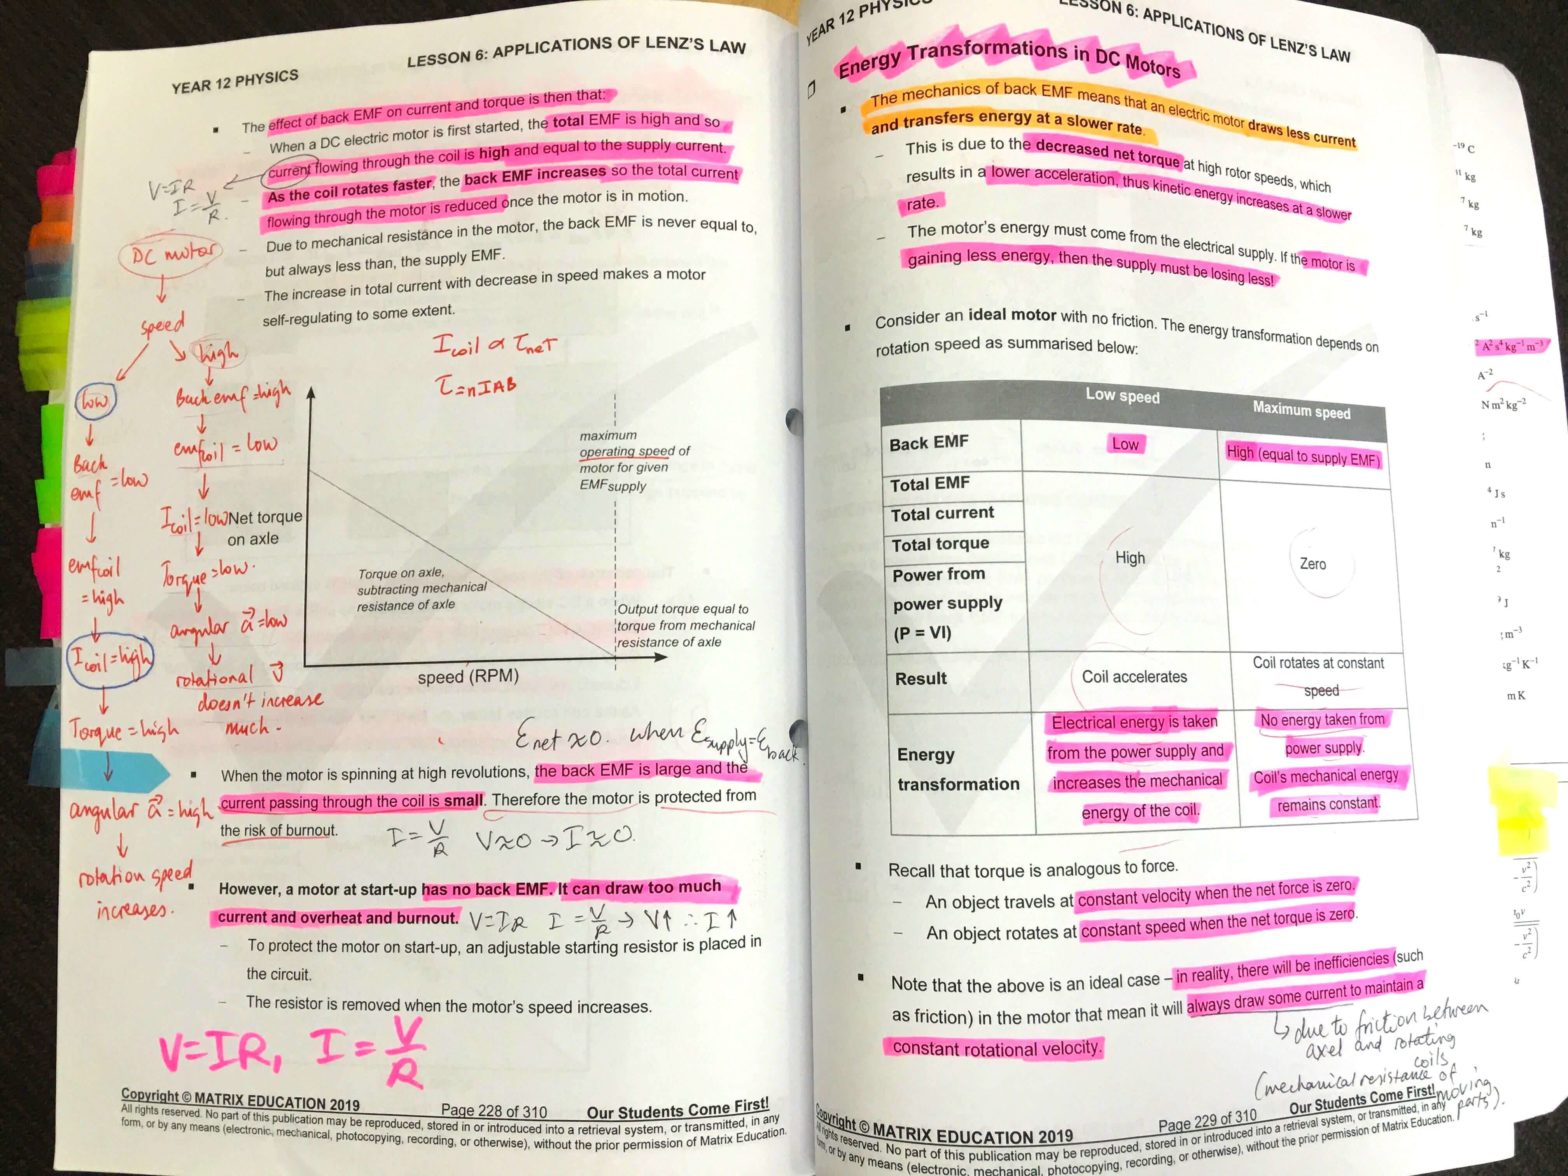 YEAR 12 PHYSICS
LESSON 6: APPLICATIONS OF LENZ'S LAW
▪ The effect of back EMF on current and torque is then that:
– When a DC electric motor is first started, the total EMF is high and so
current flowing through the coil is high and equal to the supply current.
– As the coil rotates faster, the back EMF increases so the total current
flowing through the motor is reduced once the motor is in motion.
– Due to mechanical resistance in the motor, the back EMF is never equal to,
but always less than, the supply EMF.
– The increase in total current with decrease in speed makes a motor
self-regulating to some extent.
V=IR
I=V/R.
DC motor
speed
low
Back emf =low
emfcoil =high
Icoil=high
Torque=high
angular a⃗=high
rotation speed
increases.
high
Back emf=high
emfcoil=low
Icoil=low
Torque=low.
angular a⃗=low
rotational v⃗
doesn't increase
much.
Icoil ∝ τneT
τ=nIAB
Net torque
on axle
Torque on axle,
subtracting mechanical
resistance of axle
maximum
operating speed of
motor for given
EMFsupply
Output torque equal to
torque from mechanical
resistance of axle
speed (RPM)
εnet ≈0. when εsupply=εback.
▪ When the motor is spinning at high revolutions, the back EMF is large and the
current passing through the coil is small. Therefore the motor is protected from
the risk of burnout.
I=V/R V≈0 → I≈0.
▪ However, a motor at start-up has no back EMF. It can draw too much
current and overheat and burnout.
V=IR I=V/R → V↑ ∴ I↑
– To protect the motor on start-up, an adjustable starting resistor is placed in
the circuit.
– The resistor is removed when the motor's speed increases.
V=IR, I=V/R
Copyright © MATRIX EDUCATION 2019
Page 228 of 310
Our Students Come First!
All rights reserved. No part of this publication may be reproduced, stored in or introduced into a retrieval system, or transmitted, in any
form, or by any means (electronic, mechanical, photocopying, recording, or otherwise), without the prior permission of Matrix Education.
YEAR 12 PHYSICS
LESSON 6: APPLICATIONS OF LENZ'S LAW
Energy Transformations in DC Motors
▪ The mechanics of back EMF means that an electric motor draws less current
and transfers energy at a slower rate.
– This is due to the decreased net torque at high rotor speeds, which
results in a lower acceleration, thus kinetic energy increases at a slower
rate.
– The motor's energy must come from the electrical supply. If the motor is
gaining less energy, then the supply must be losing less!
▪ Consider an ideal motor with no friction. The energy transformation depends on
rotation speed as summarised below:
Low speed
Maximum speed
Back EMF
Low
High (equal to supply EMF)
Total EMF
Total current
Total torque
Power from
power supply
(P = VI)
High
Zero
Result
Coil accelerates
Coil rotates at constant
speed
Energy
transformation
Electrical energy is taken
from the power supply and
increases the mechanical
energy of the coil.
No energy taken from
power supply.
Coil's mechanical energy
remains constant.
▪ Recall that torque is analogous to force.
– An object travels at constant velocity when the net force is zero.
– An object rotates at constant speed when the net torque is zero.
▪ Note that the above is an ideal case – in reality, there will be inefficiencies (such
as friction) in the motor that mean it will always draw some current to maintain a
constant rotational velocity.
↳ due to friction between
axel and rotating
coils
(mechanical resistance of
moving
parts).
Copyright © MATRIX EDUCATION 2019
Page 229 of 310
Our Students Come First!
All rights reserved. No part of this publication may be reproduced, stored in or introduced into a retrieval system, or transmitted, in any
form, or by any means (electronic, mechanical, photocopying, recording, or otherwise), without the prior permission of Matrix Education.
-19 C
kg
7 kg
7 kg
s⁻¹
² A² s⁴ kg⁻¹ m⁻³
A⁻²
N m² kg⁻²
n
⁴ J s
n⁻¹
kg
2
J
m⁻³
kg⁻¹ K⁻¹
m K